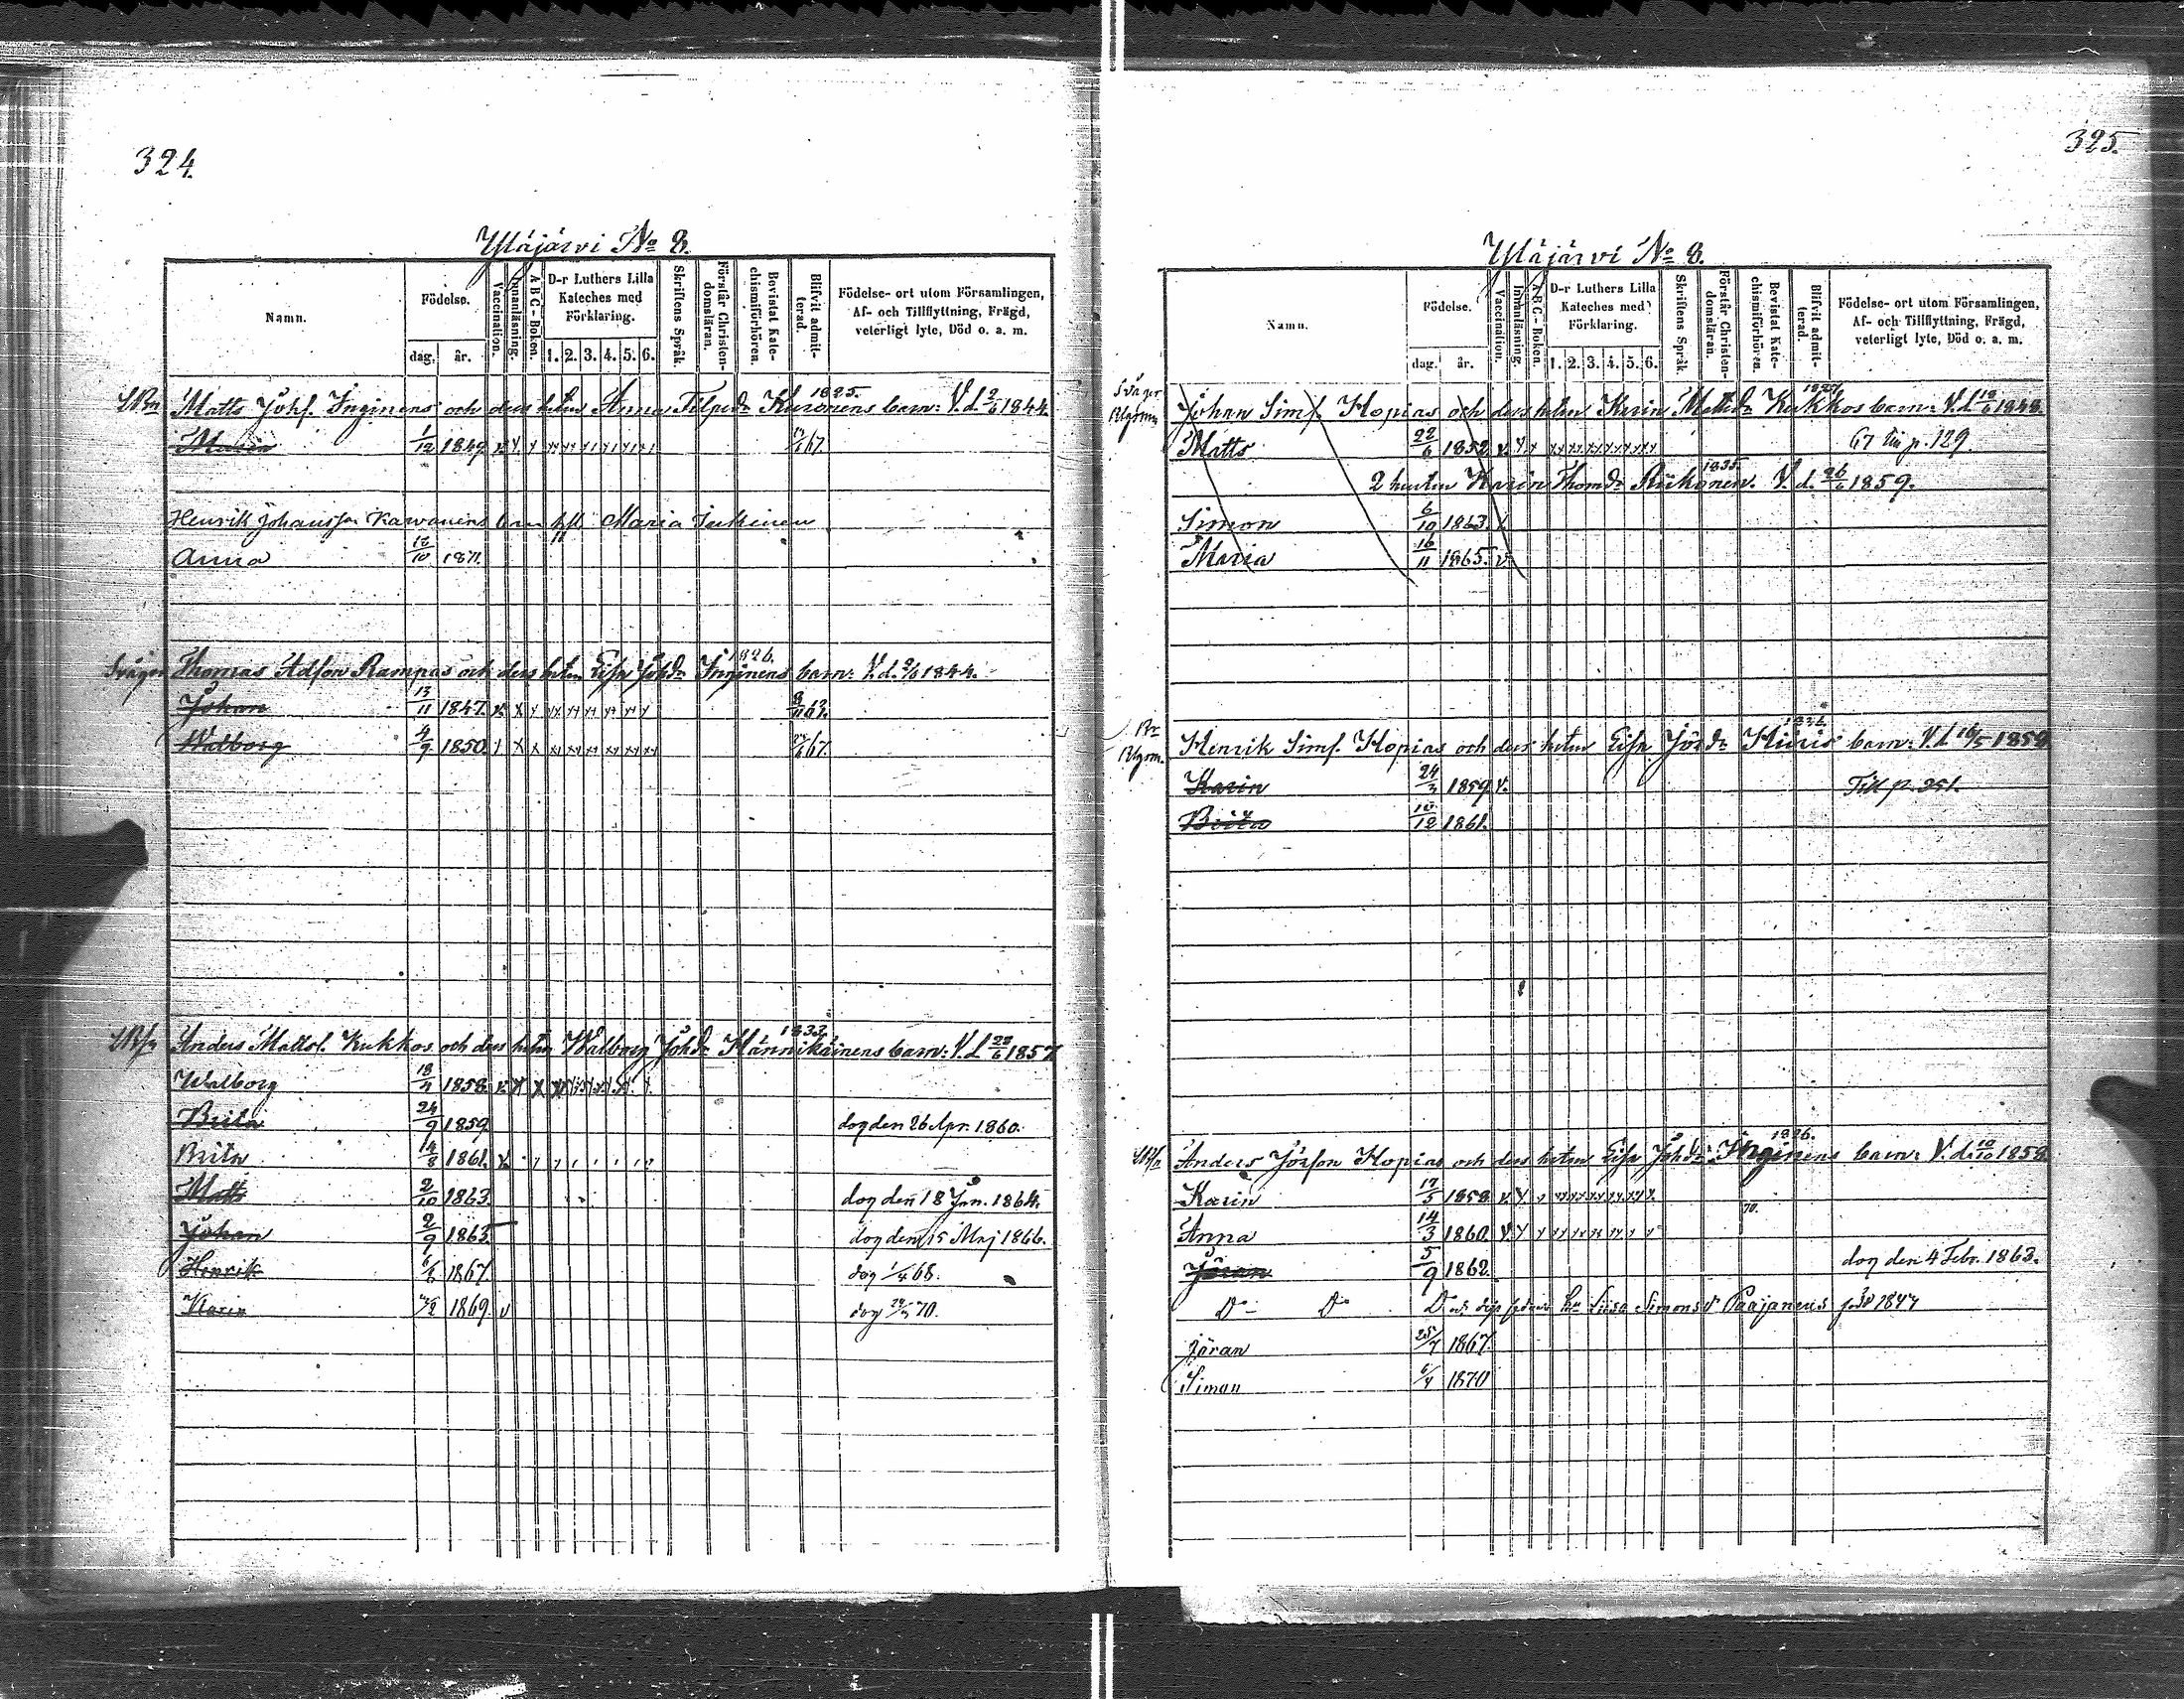 324.
Yläjärvi No 8.
Namn.
Födelse.
dag. år.
Vaccination.
Innanläsning.
A B C - Boken.
D-r Luthers Lilla
Kateches med
Förklaring.
1. 2. 3. 4. 5. 6.
Skriftens Språk.
Förstår Christen-
domsläran.
Bevistat Kate-
chismiförhören.
Blifvit admit-
terad.
Födelse- ort utom Församlingen,
Af- och Tillflyttning, Frägd,
veterligt lyte, Död o. a. m.
1825.
Matts Johs. Inginens och dess hstru Anna Filipsdr Kuronens barn: V. d. 2/6 1844.
Maria 1/12 1849. 67.
Henrik Johansson Kawonens barn Maria
Anna 12/10 1871.
1826.
Svåger Thomas Adsson Rampas och dess hstru Lisa Johdr Inginens barn: V. d. 1844.
Johan 13/11 1847. 8/11 63.
Walborg 4/9 1850. 67.
1833.
Anders Mattss. Kukkos och dess hstru Walborg Johdr Hännikäinens barn: V. d. 22/6 1857.
Walborg 18/4 1858.
Brita 24/9 1859 dog den 26 Apr. 1860.
Brita 14/8 1861.
Matts 2/10 1863. dog den 18 Jan. 1864.
Johan 2/9 1865 dog den 15 Maj 1866.
Henrik 6/8 1867. dog 1/4 68.
Karin 1869. dog 70.
325.
Yläjärvi No 8.
Namn.
Födelse.
dag. år.
Vaccination.
Innanläsning.
A B C - Boken.
D-r Luthers Lilla
Kateches med
Förklaring.
1. 2. 3. 4. 5. 6.
Skriftens Språk.
Förstår Christen-
domsläran.
Bevistat Kate-
chismiförhören.
Blifvit admit-
terad.
Födelse- ort utom Församlingen,
Af- och Tillflyttning, Frägd,
veterligt lyte, Död o. a. m.
Svåger
1827.
Johan Sims. Hopias och dess hstru Karin Mattsdr Kukkos barn: V. d. 18/6 1848.
Matts 22/6 1852 67 till p. 129.
1835.
2 hustru Karin Thomdr Riikonen. V. d. 26/6 1859.
Simon 6/10 1863.
Maria 16/11 1865.
Henrik Sims. Hopias och dess hstru Lisa Jördr Hiiris barn: V. d. 16/5 1858
Karin 24/3 1859 Till p. 251.
Brita 10/12 1861.
1826.
Anders Jörsson Hopias och dess hstru Lisa Johdr Inginens barn: V. d. 10/10 1858.
Karin 17/5 1858
70.
Anna 14/3 1860
Jöran 5/9 1862. dog den 4 Febr. 1863.
Do Do Simonsdr Paajanens 1847
Jöran 25/7 1867.
Simon 6/4 1870